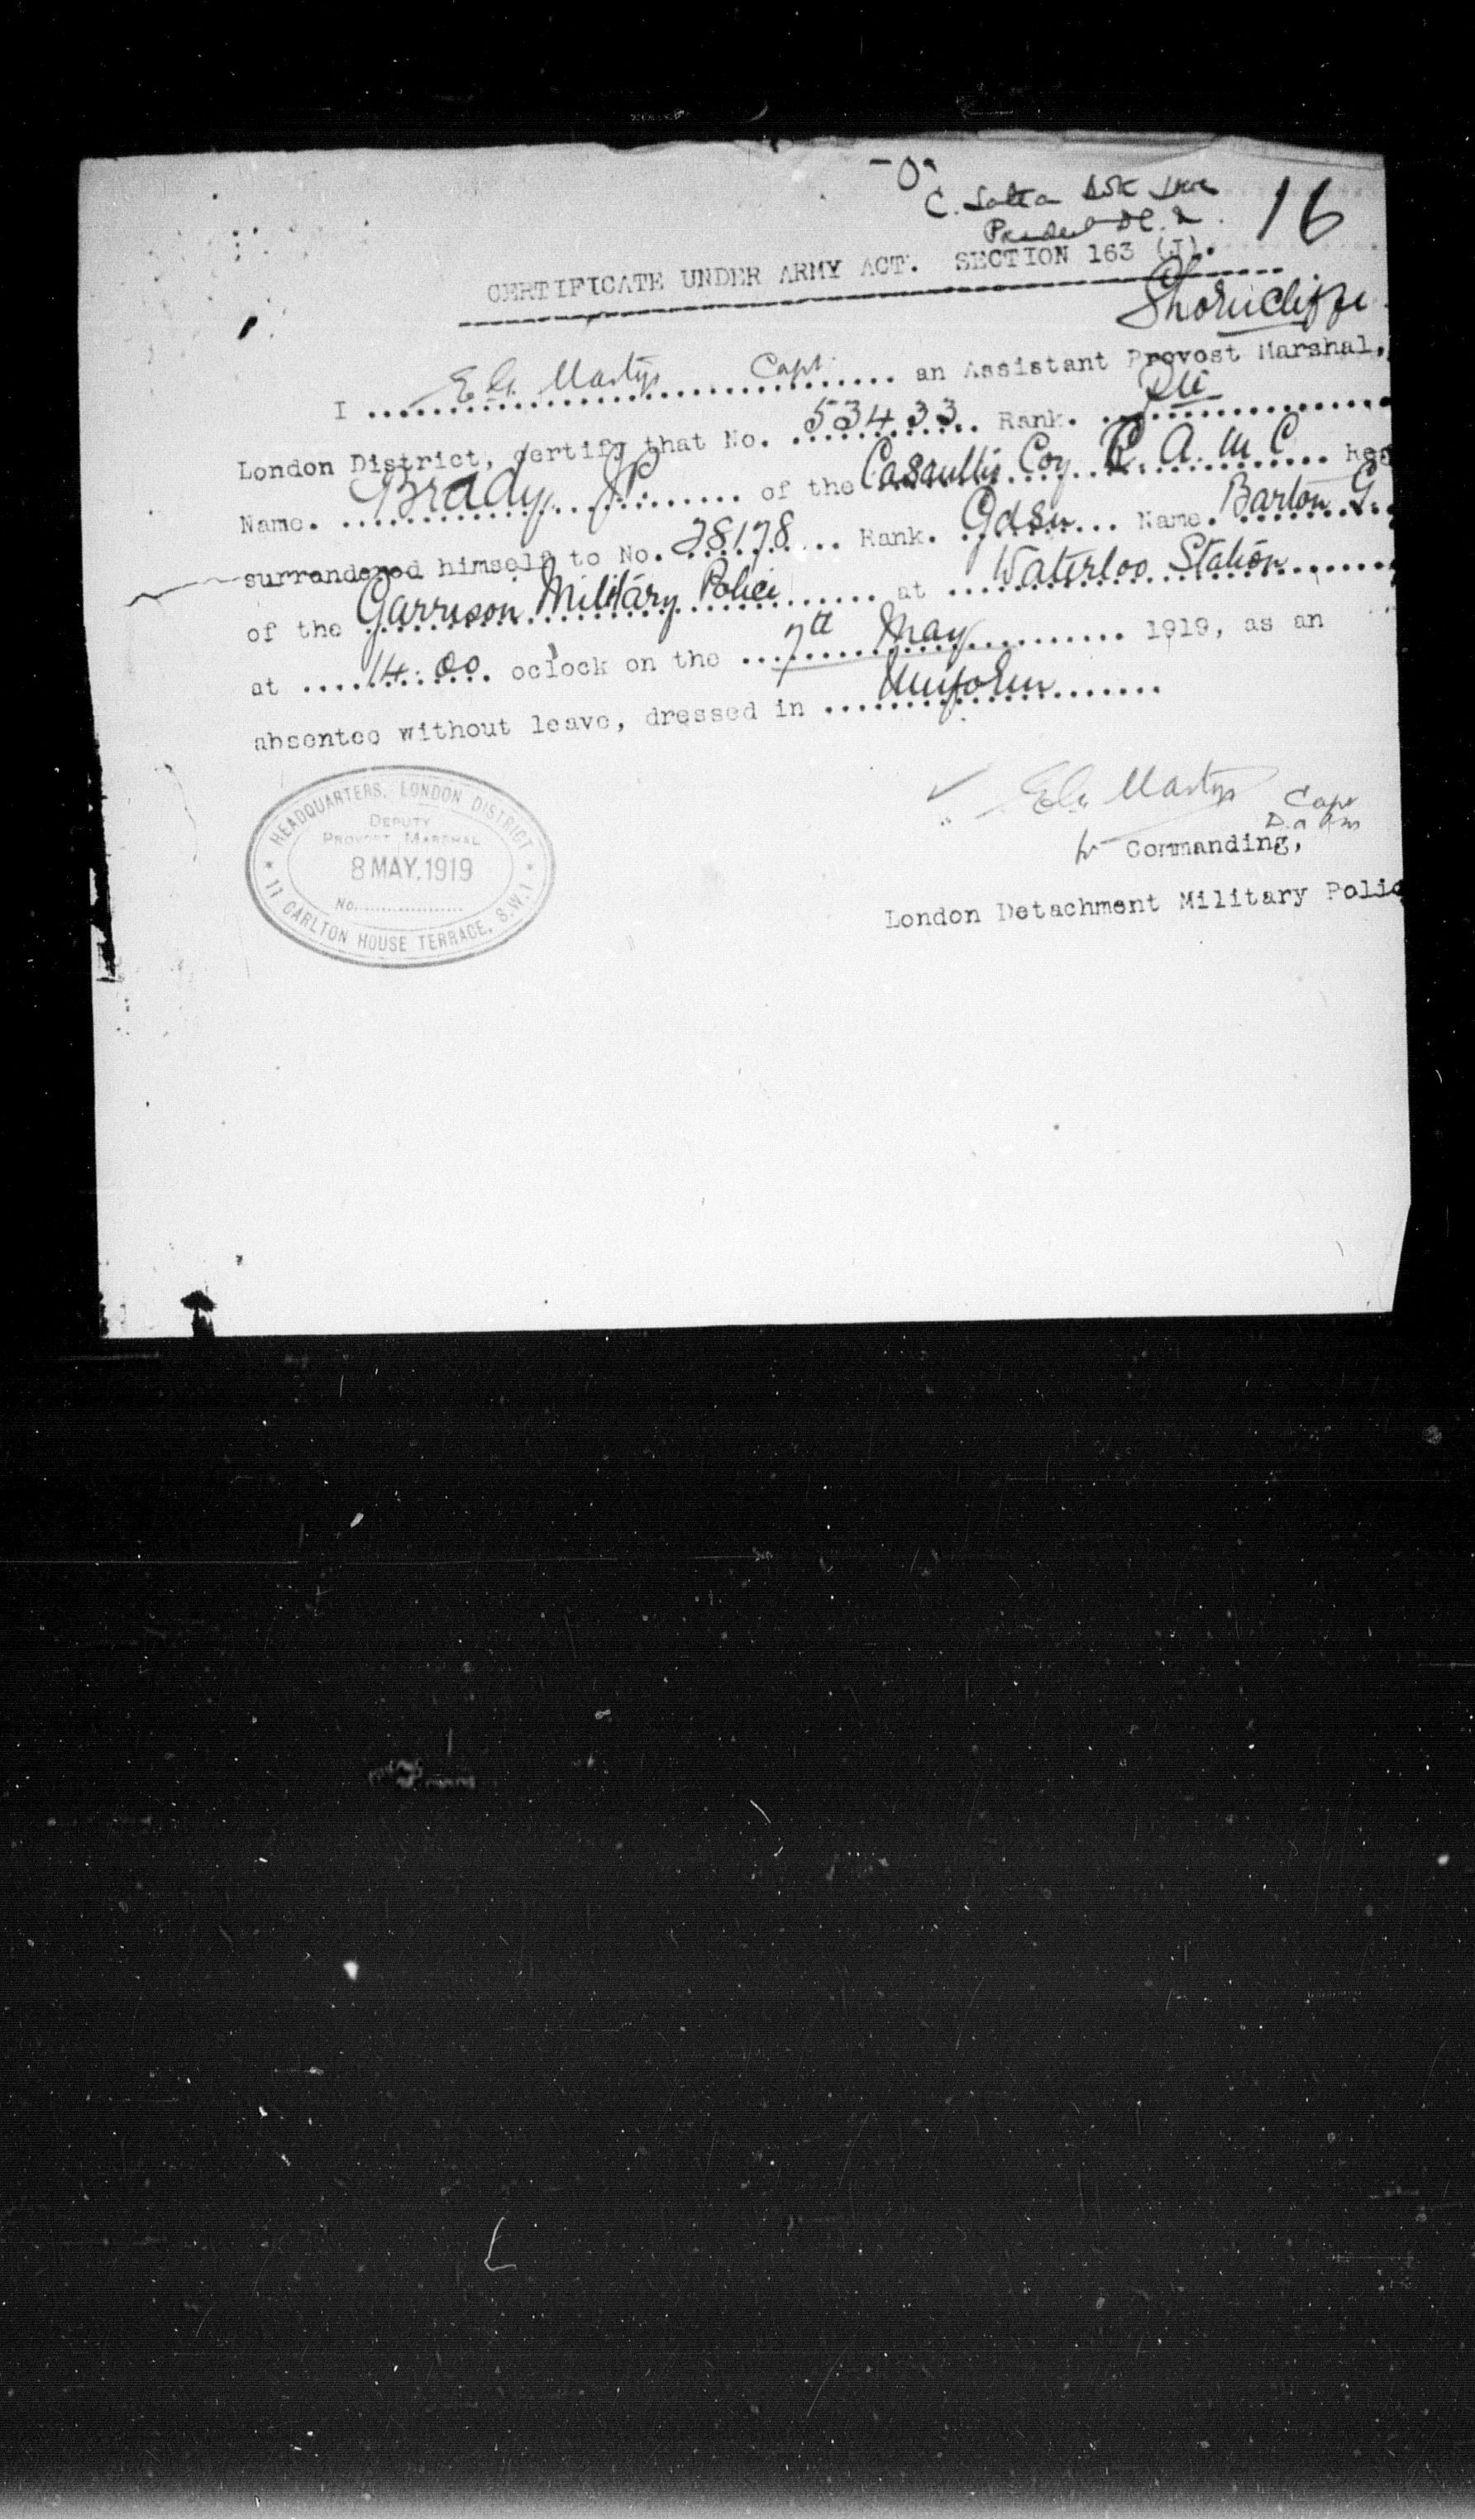 "O"
C.
16
CERTIFICATE UNDER ARMY ACT. SECTION 163 (J).
Shorncliffe
I ... E.G. Martyr Capt. ... an Assistant Provost Marshal,
London District, certify that No. 53433 Rank. Pte
Name. Brady J P of the Casualty Coy R. A. M C Reg
surrendered himself to No. 28178 Rank. Gdsn Name. Barton G.
of the Garrison Military Police at Waterloo Station
at 14.00 oclock on the 7th May 1919, as an
absentee without leave, dressed in Uniform
HEADQUARTERS, LONDON DISTRICT
DEPUTY
PROVOST MARSHAL
8 MAY. 1919
No.
11 CARLTON HOUSE TERRACE, S.W.1
E.G. Martyr Capt
Commanding,
London Detachment Military Polic